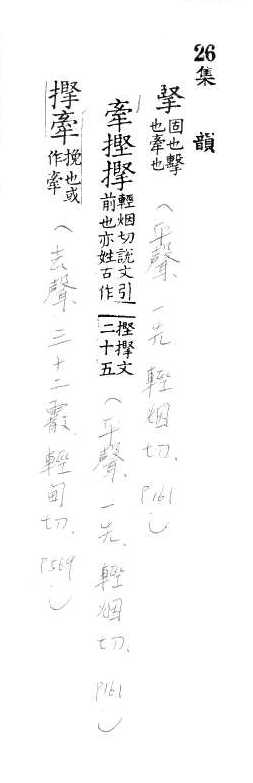 26 集韻
掔 固也擊也牽也(平聲 一先 輕烟切. P161)
牽𢮀摼 輕烟切說文引前也亦姓古作𢮀摼文二十五(平聲. 一先. 輕烟切. P161)
牽 挽也或作牽(去聲 三十二霰 輕甸切. P569)